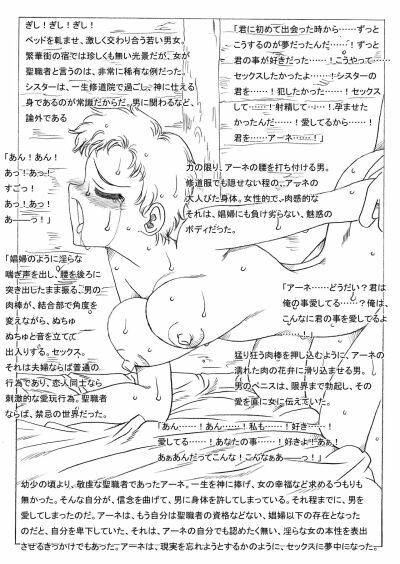 ぎし！ぎし！ぎし！
ベッドを軋ませ、激しく交わり合う若い男女、
繁華街の宿では珍しくも無い光景だが、女が
聖職者と言うのは、非常に稀有な例だった。
シスターは、一生修道院で過ごし、神に仕える
身であるのが常識だからだ。男に関わるなど、
論外である
「君に初めて出会った時から……ずっと
こうするのが夢だったんだ……！ずっと
君の事が好きだった……！こうやって…
セックスしたかったよ……！シスターの
君を……！犯したかった……！セックス
して……！射精して……！孕ませた
かったんだ……！愛してるから……！
君を……アーネ……！」
「あん！あん！
あっ！あっ！
すごっ！
あっ！あっ！
あーーっ！」
力の限り、アーネの腰を打ち付ける男。
修道服でも隠せない程の、アーネの
大人びた身体。女性的で、肉感的な
それは、娼婦にも負け劣らない、魅惑の
ボディだった。
「娼婦のように淫らな
喘ぎ声を出し、腰を後ろに
突き出したまま振る、男の
肉棒が、結合部で角度を
変えながら、ぬちゅ
ぬちゅと音を立てて
出入りする。セックス。
それは夫婦ならば普通の
行為であり、恋人同士なら
刺激的な愛玩行為。聖職者
ならば、禁忌の世界だった。
「アーネ……どうだい？君は
俺の事愛してる……？俺は、
こんなに君の事を愛してるよ
……！」
猛り狂う肉棒を押し込むように、アーネの
濡れた肉の花弁に滑り込ませる男。
男のペニスは、限界まで勃起し、その
愛を直に女に伝えていた。
「あん……！あん……！私も……！好き……！
愛してる……！あなたの事……！好きよ！あぁ！
あぁあんだってこんな！こんなぁあーーっ！」
幼少の頃より、敬虔な聖職者であったアーネ。一生を神に捧げ、女の幸福など求めるつもりも
無かった。そんな自分が、信念を曲げて、男に身体を許してしまっている。それ程までに、男を
愛してしまったのだ。アーネは、もう自分は聖職者の資格などない、娼婦以下の存在となった
のだと、自分を卑下していた、それは、アーネの自分でも認めたくない、淫らな女の本性を表出
させるきっかけでもあった。アーネは、現実を忘れようとするかのように、セックスに夢中になった。